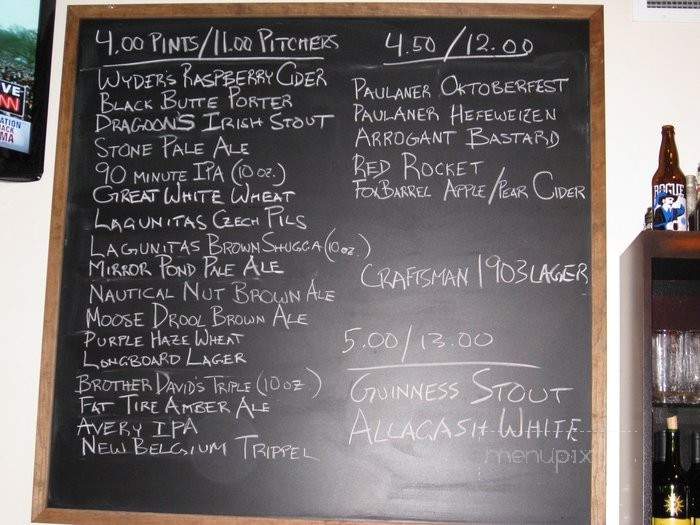 4.00 PINTS/11.00 PITCHERS
WYDER'S RASPBERRY CIDER
BLACK BUTTE PORTER
DRAGOONS IRISH STOUT
STONE PALE ALE
90 MINUTE IPA (10 OZ.)
GREAT WHITE WHEAT
LAGUNITAS CZECH PILS
LAGUNITAS BROWN SHUGGA (10 OZ.)
MIRROR POND PALE ALE
NAUTICAL NUT BROWN ALE
MOOSE DROOL BROWN ALE
PURPLE HAZE WHEAT
LONGBOARD LAGER
BROTHER DAVID'S TRIPLE (10 OZ)
FAT TIRE AMBER ALE
AVERY IPA
NEW BELGIUM TRIPPEL
4.50/12.00
PAULANER OKTOBERFEST
PAULANER HEFEWEIZEN
ARROGANT BASTARD
RED ROCKET
FOXBARREL APPLE/PEAR CIDER
CRAFTSMAN 1903 LAGER
5.00/13.00
GUINNESS STOUT
ALLAGASH WHITE
menupix
ROGUE